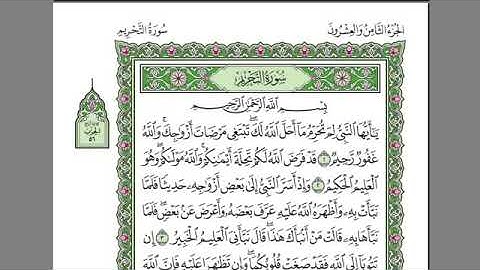 سُورَةُ التَّحْرِيمِ
الجُزْءُ الثَّامِنُ وَالعِشْرُونَ
سُورَةُ التَّحْرِيمِ
بِسْمِ اللَّهِ الرَّحْمَٰنِ الرَّحِيمِ
يَٰٓأَيُّهَا ٱلنَّبِىُّ لِمَ تُحَرِّمُ مَآ أَحَلَّ ٱللَّهُ لَكَ ۖ تَبْتَغِى مَرْضَاتَ أَزْوَٰجِكَ ۚ وَٱللَّهُ
غَفُورٌ رَّحِيمٌ ١ قَدْ فَرَضَ ٱللَّهُ لَكُمْ تَحِلَّةَ أَيْمَٰنِكُمْ ۚ وَٱللَّهُ مَوْلَىٰكُمْ ۖ وَهُوَ
ٱلْعَلِيمُ ٱلْحَكِيمُ ٢ وَإِذْ أَسَرَّ ٱلنَّبِىُّ إِلَىٰ بَعْضِ أَزْوَٰجِهِۦ حَدِيثًا فَلَمَّا
نَبَّأَتْ بِهِۦ وَأَظْهَرَهُ ٱللَّهُ عَلَيْهِ عَرَّفَ بَعْضَهُۥ وَأَعْرَضَ عَنۢ بَعْضٍ ۖ فَلَمَّا
نَبَّأَهَا بِهِۦ قَالَتْ مَنْ أَنۢبَأَكَ هَٰذَا ۖ قَالَ نَبَّأَنِىَ ٱلْعَلِيمُ ٱلْخَبِيرُ ٣ إِن
تَتُوبَآ إِلَى ٱللَّهِ فَقَدْ صَغَتْ قُلُوبُكُمَا ۖ وَإِن تَظَٰهَرَا عَلَيْهِ فَإِنَّ ٱللَّهَ
الحزب
٥٦